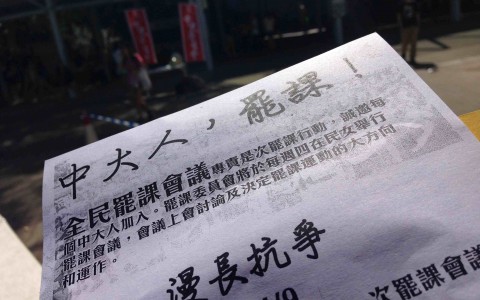 中大人，罷課！
全民罷課會議專責是次罷課行動，誠邀每
個中大人加入。罷課委員會將於每週四在民女舉行
罷課會議，會議上會討論及決定罷課運動的大方向
和運作。
漫長抗爭
次罷課會議